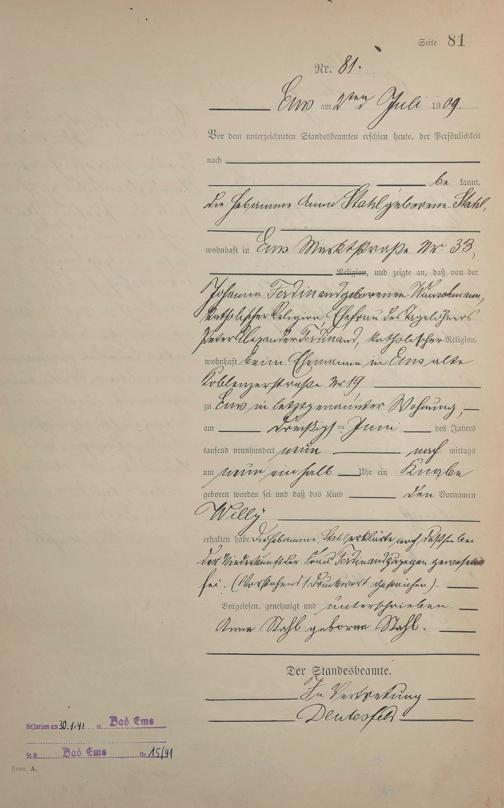 Seite 81
Nr. 81.
Ems am 2ten Juli 1909
Vor dem unterzeichneten Standesbeamten erschien heute, der Persönlichkeit
nach
be kannt,
die Hebamme Anna Stahl geborene Stahl,
wohnhaft in Ems Marktstraße Nr 33,
Religion, und zeigte an, daß von der
Johanna Ferdinand geborenen
katholischer Religion Ehefrau des Tagelöhners
Peter Alexander Ferdinand, katholischer Religion,
wohnhaft beim Ehemanne in Ems alte
Koblenzerstraße Nr 19
zu Ems, in letztgenannter Wohnung,
am Dreißigsten Juni des Jahres
tausend neunhundert neun nach mittags
um neun einhalb Uhr ein Knabe
geboren worden sei und daß das Kind den Vornamen
Willy
erhalten habe. Die Hebamme Stahl erklärte noch, daß sie bei
der Niederkunft der Frau Ferdinand zugegen gewesen
sei. (Vorstehend 1 Druckwort gestrichen).
Vorgelesen, genehmigt und unterschrieben.
Anna Stahl geborene Stahl.
Der Standesbeamte.
In Vertretung
am 30.1.41 Bad Ems
Bad Ems Nr. 15/41
Form. A.